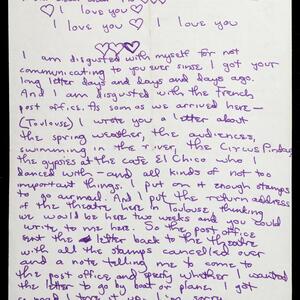 I love you ♡
I love you ♡ I love you
♡♡♡
I am disgusted with myself for not
communicating to you ever since I got your
long letter days and days and days ago.
And I am disgusted with the French
post office. As soon as we arrived here —
(Toulouse) I wrote you a letter about
the spring weather, the audiences,
swimming in the river, the Circus Findus,
the gypsies at the Cafe El Chico who I
danced with — and all kinds of not too
important things. I put on enough stamps
to go airmail. And I put the return address
of the theatre here in Toulouse, thinking
we would be here two weeks and you could
write to me here. So the post office
sent the letter back to the theatre
with all the stamps cancelled over
and a note telling me to come to
the post office and specify whether I wanted
the letter to go by boat or plane. I got
so mad I tore it up. I'm sorry